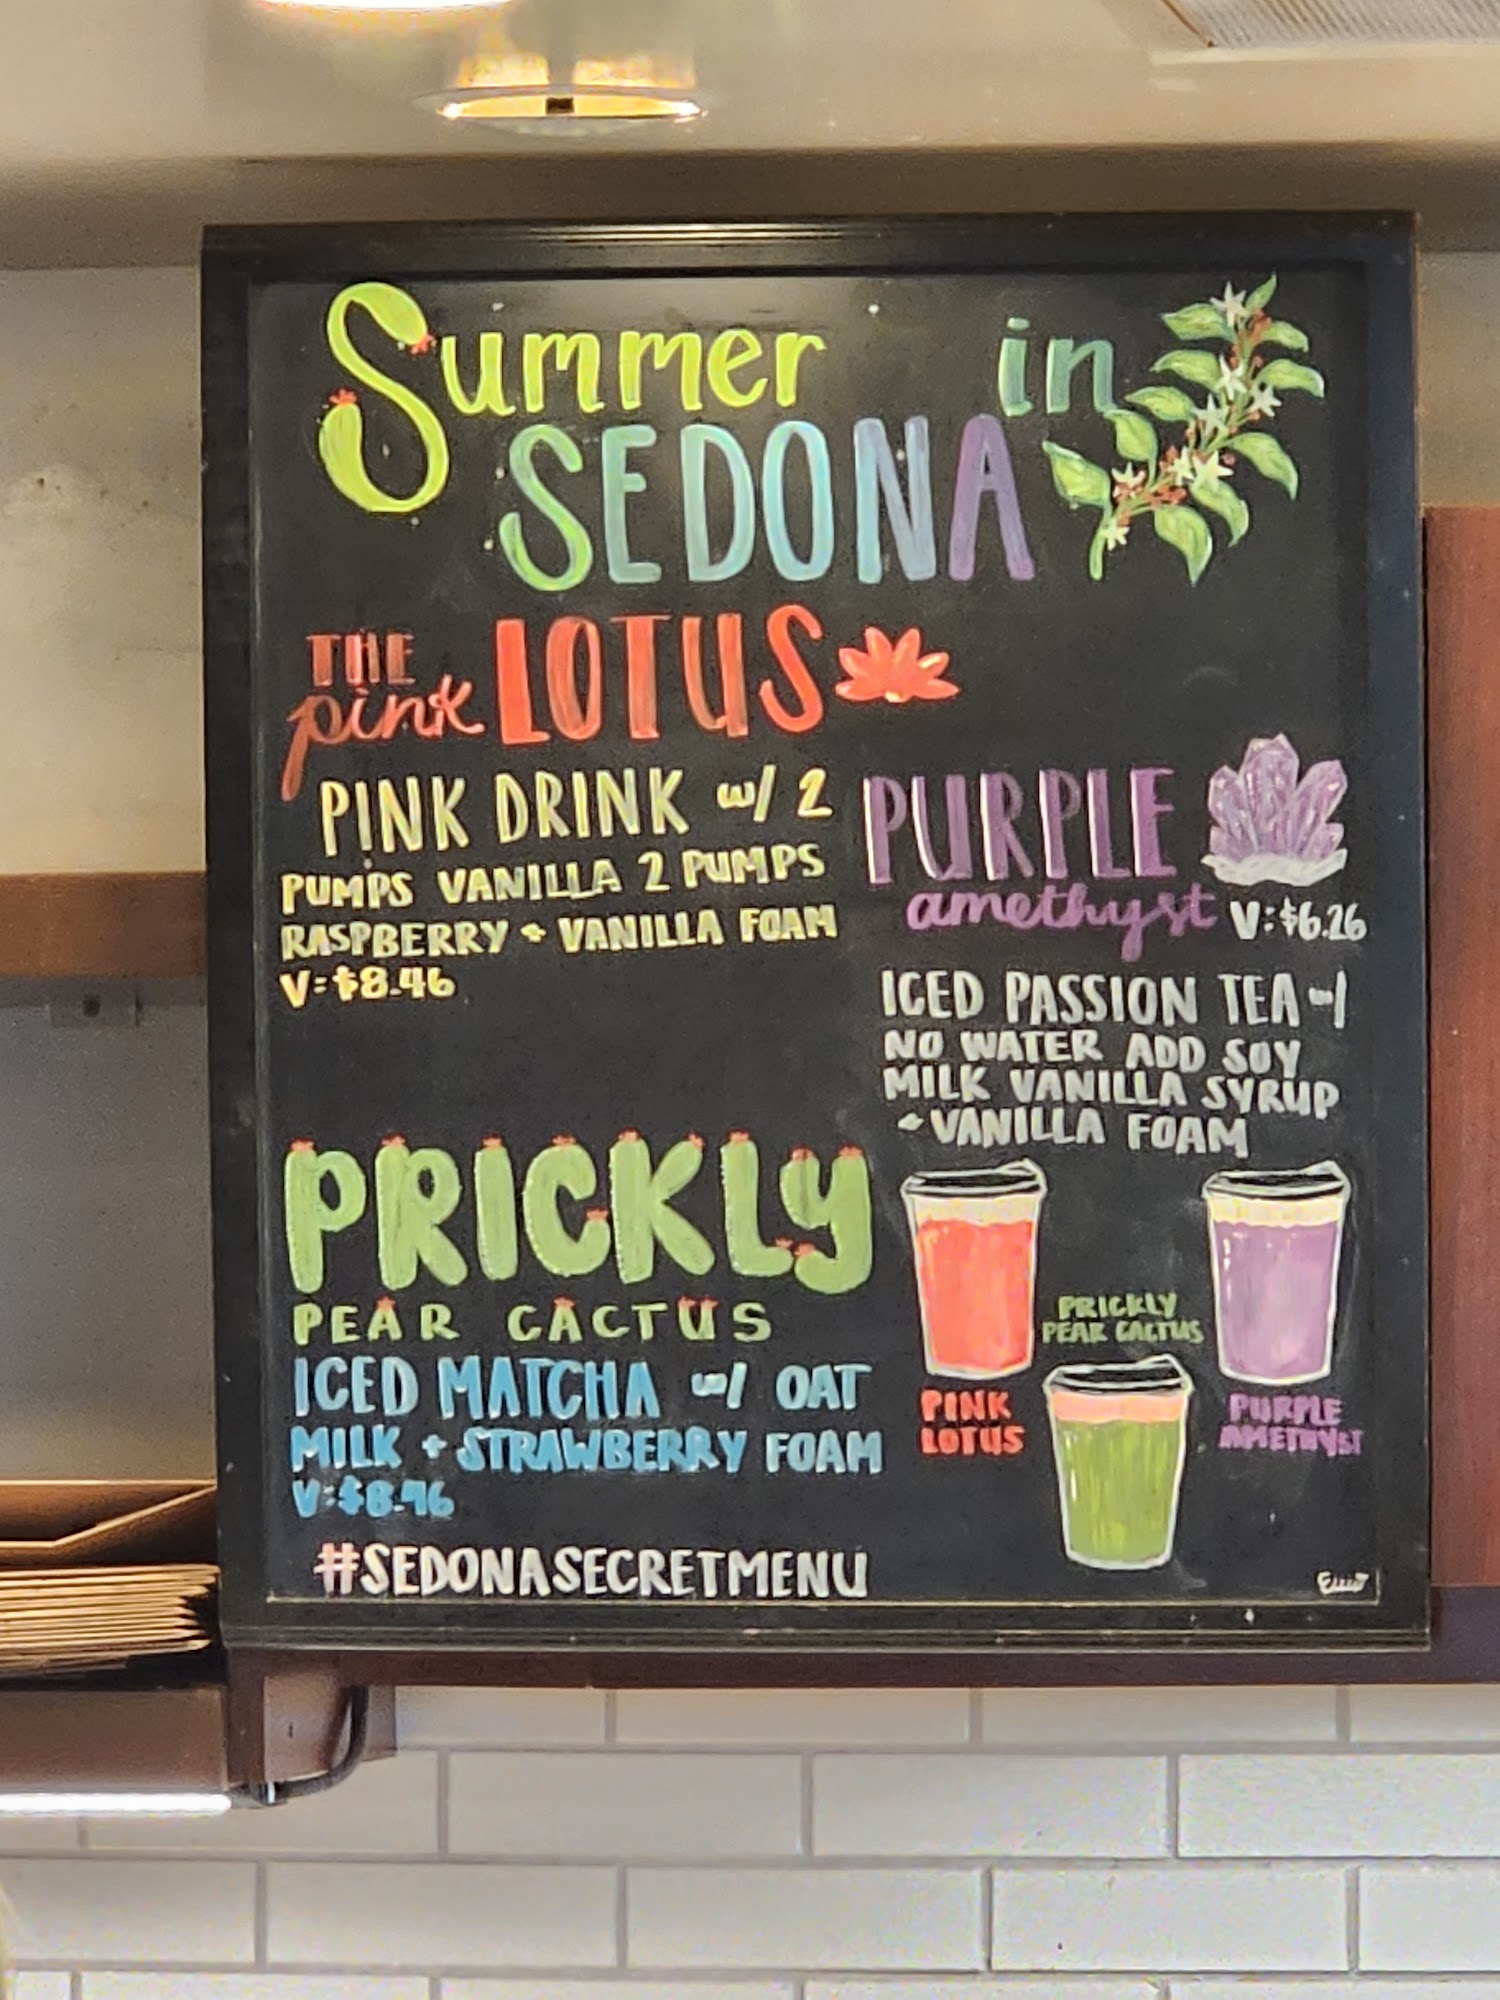 Summer in
SEDONA
THE
pink LOTUS
PINK DRINK w/ 2
PUMPS VANILLA 2 PUMPS
RASPBERRY + VANILLA FOAM
V: $8.46
PURPLE
amethyst V: $6.26
ICED PASSION TEA w/
NO WATER ADD SOY
MILK VANILLA SYRUP
+ VANILLA FOAM
PRICKLY
PEAR CACTUS
ICED MATCHA w/ OAT
MILK + STRAWBERRY FOAM
V: $8.46
PINK
LOTUS
PRICKLY
PEAR CACTUS
PURPLE
AMETHYST
#SEDONASECRETMENU